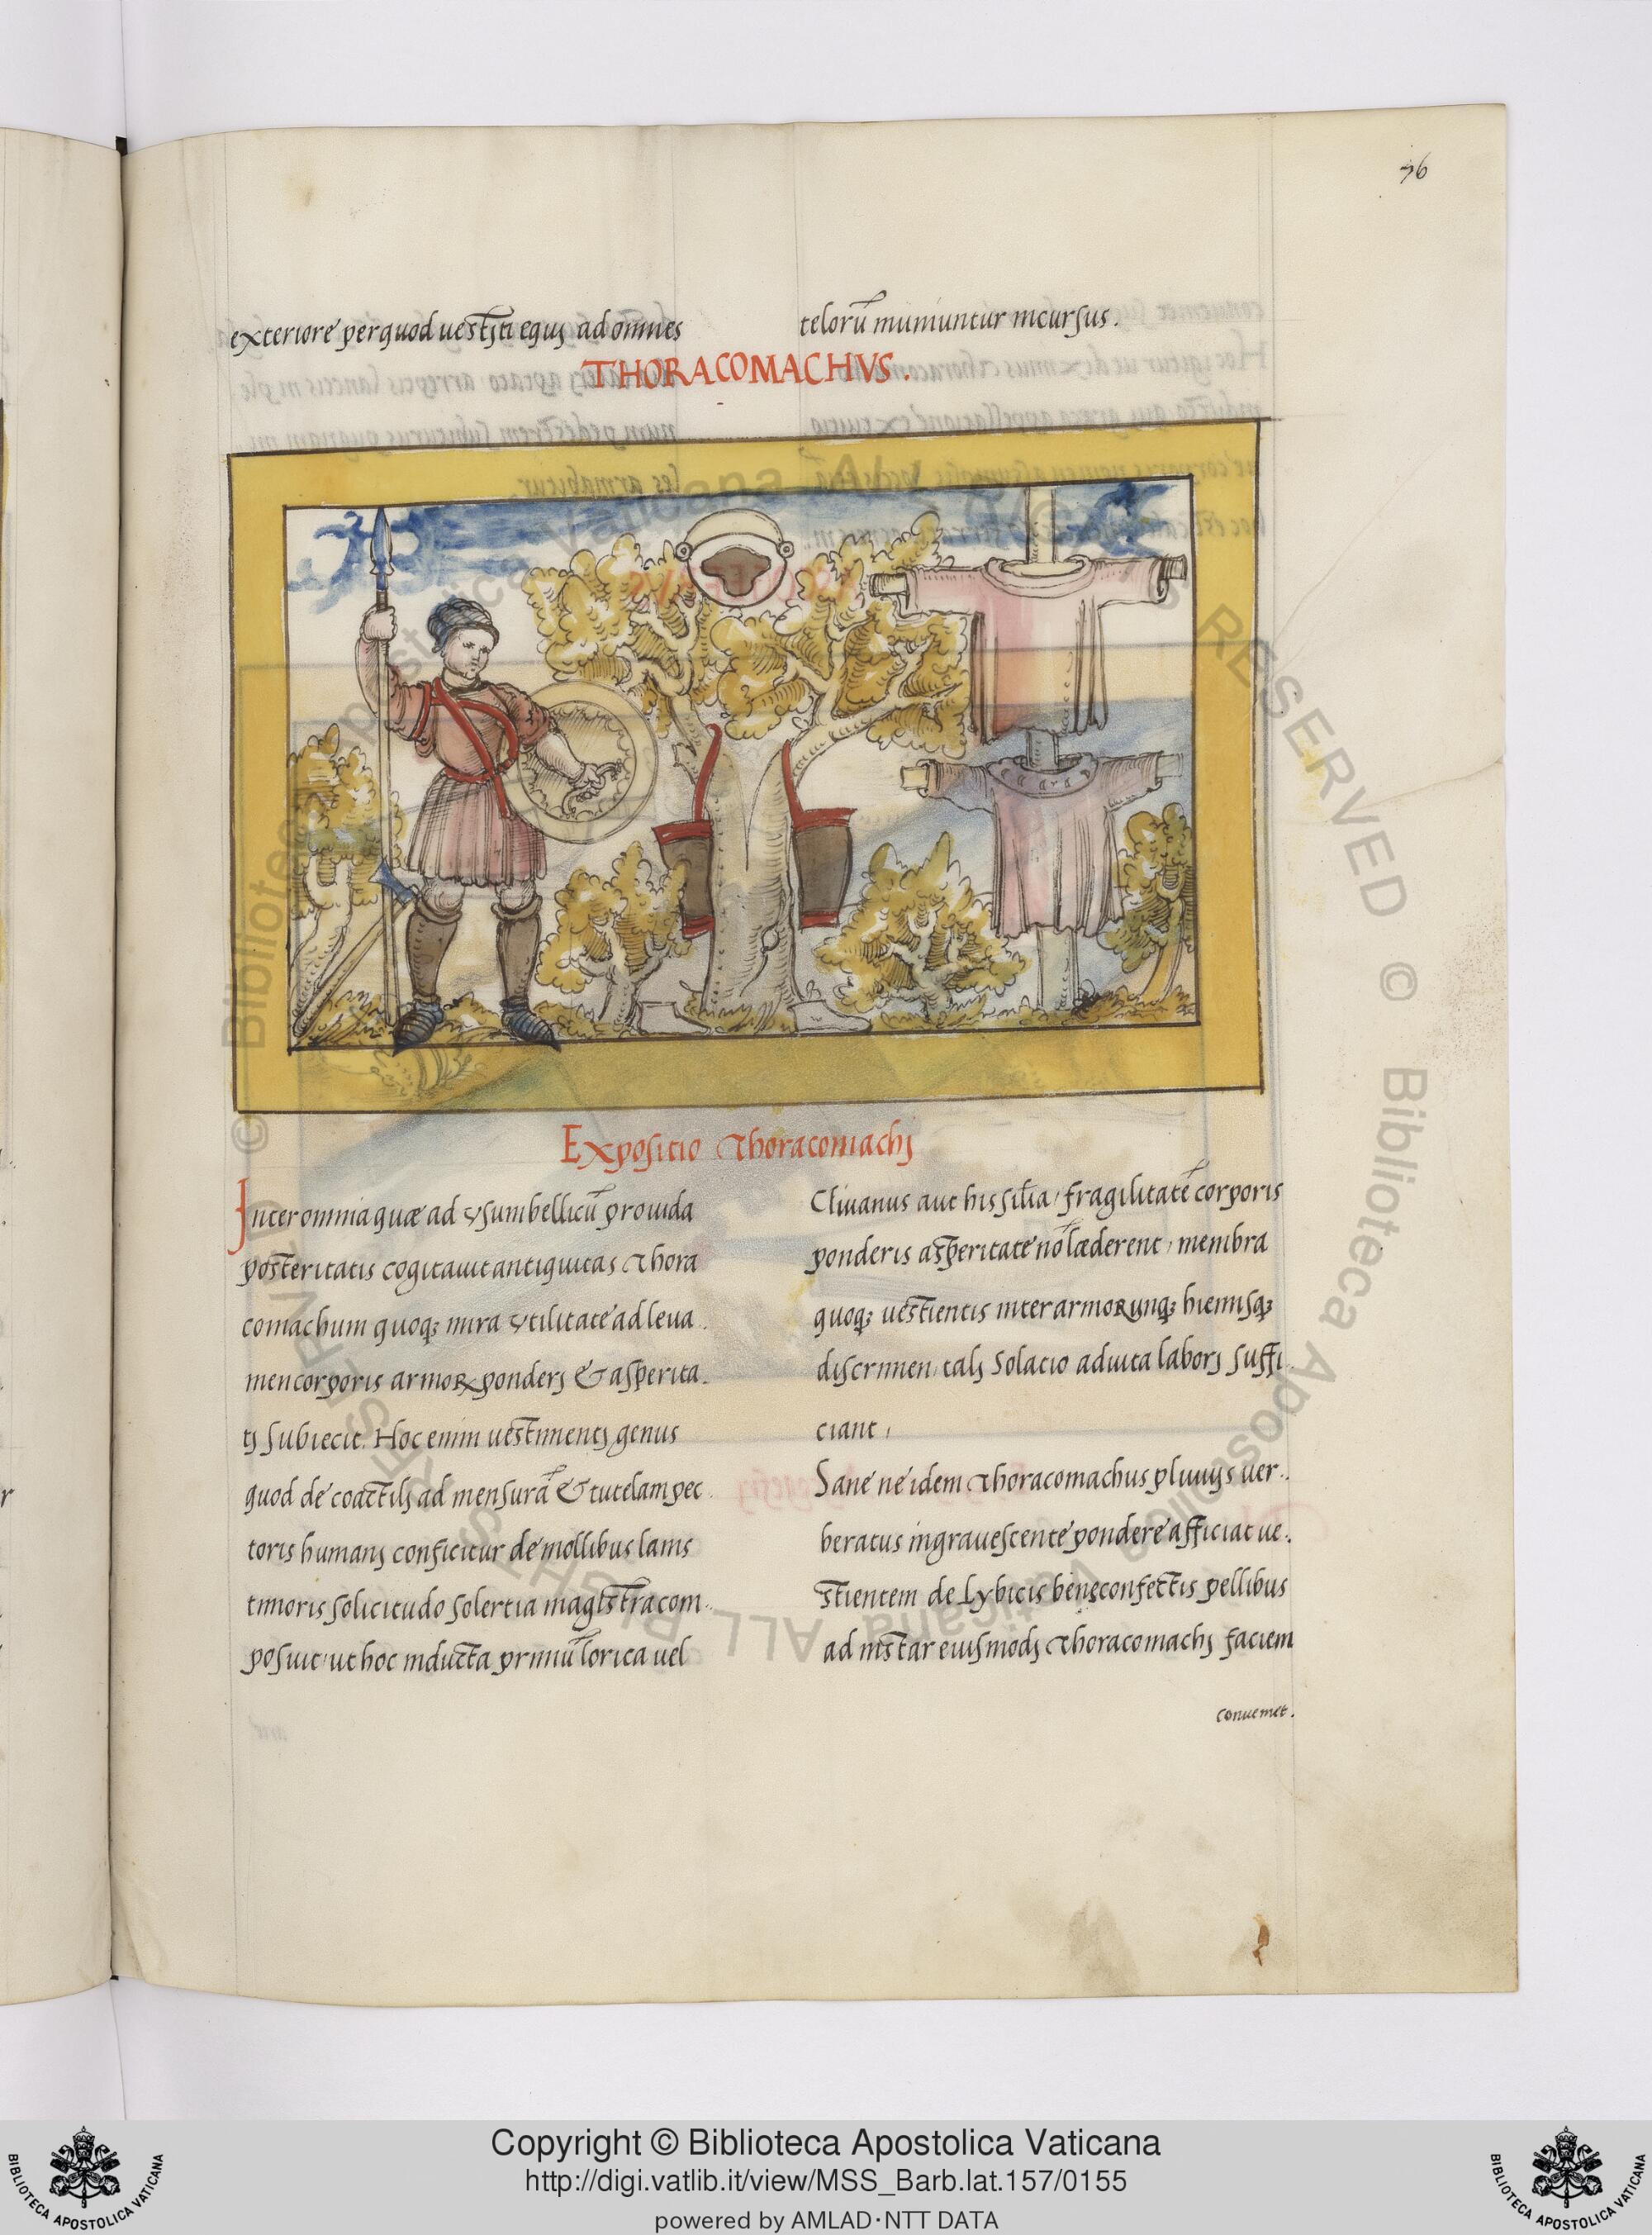 76
exteriorē per quod uestiti equi ad omnes
telorū muniuntur incursus.
THORACOMACHVS.
Expositio Thoracomachi
Inter omnia quæ ad usum bellicū prouida
posteritatis cogitauit antiquitas Thora
comachum quoq; mira utilitate ad leua
men corporis armoꝝ ponderi & asperita
ti subiecit. Hoc enim uestimenti genus
quod de coactili ad mensurā & tutelam pec
toris humani conficitur de mollibus lanis
timoris solicitudo solertia magistra com
posuit, ut hoc inducta primū lorica uel
Cliuanus aut his sil̄ia, fragilitatē corporis
ponderis asperitate nō læderent, membra
quoq; uestientis inter armorunq; hiemisq;
discrimen, tali solatio adiuta labori suffi
ciant,
Sane ne idem Thoracomachus pluuijs uer
beratus ingrauescente pondere afficiat ue
stientem de Lybicis bene confectis pellibus
ad instar eiusmodi Thoracomachi faciem
conueniet.
© Biblioteca Apostolica Vaticana ALL RIGHTS RESERVED
© Biblioteca Apostolica Vaticana ALL RIGHTS RESERVED
Copyright © Biblioteca Apostolica Vaticana
http://digi.vatlib.it/view/MSS_Barb.lat.157/0155
powered by AMLAD·NTT DATA
BIBLIOTECA APOSTOLICA VATICANA
BIBLIOTECA APOSTOLICA VATICANA